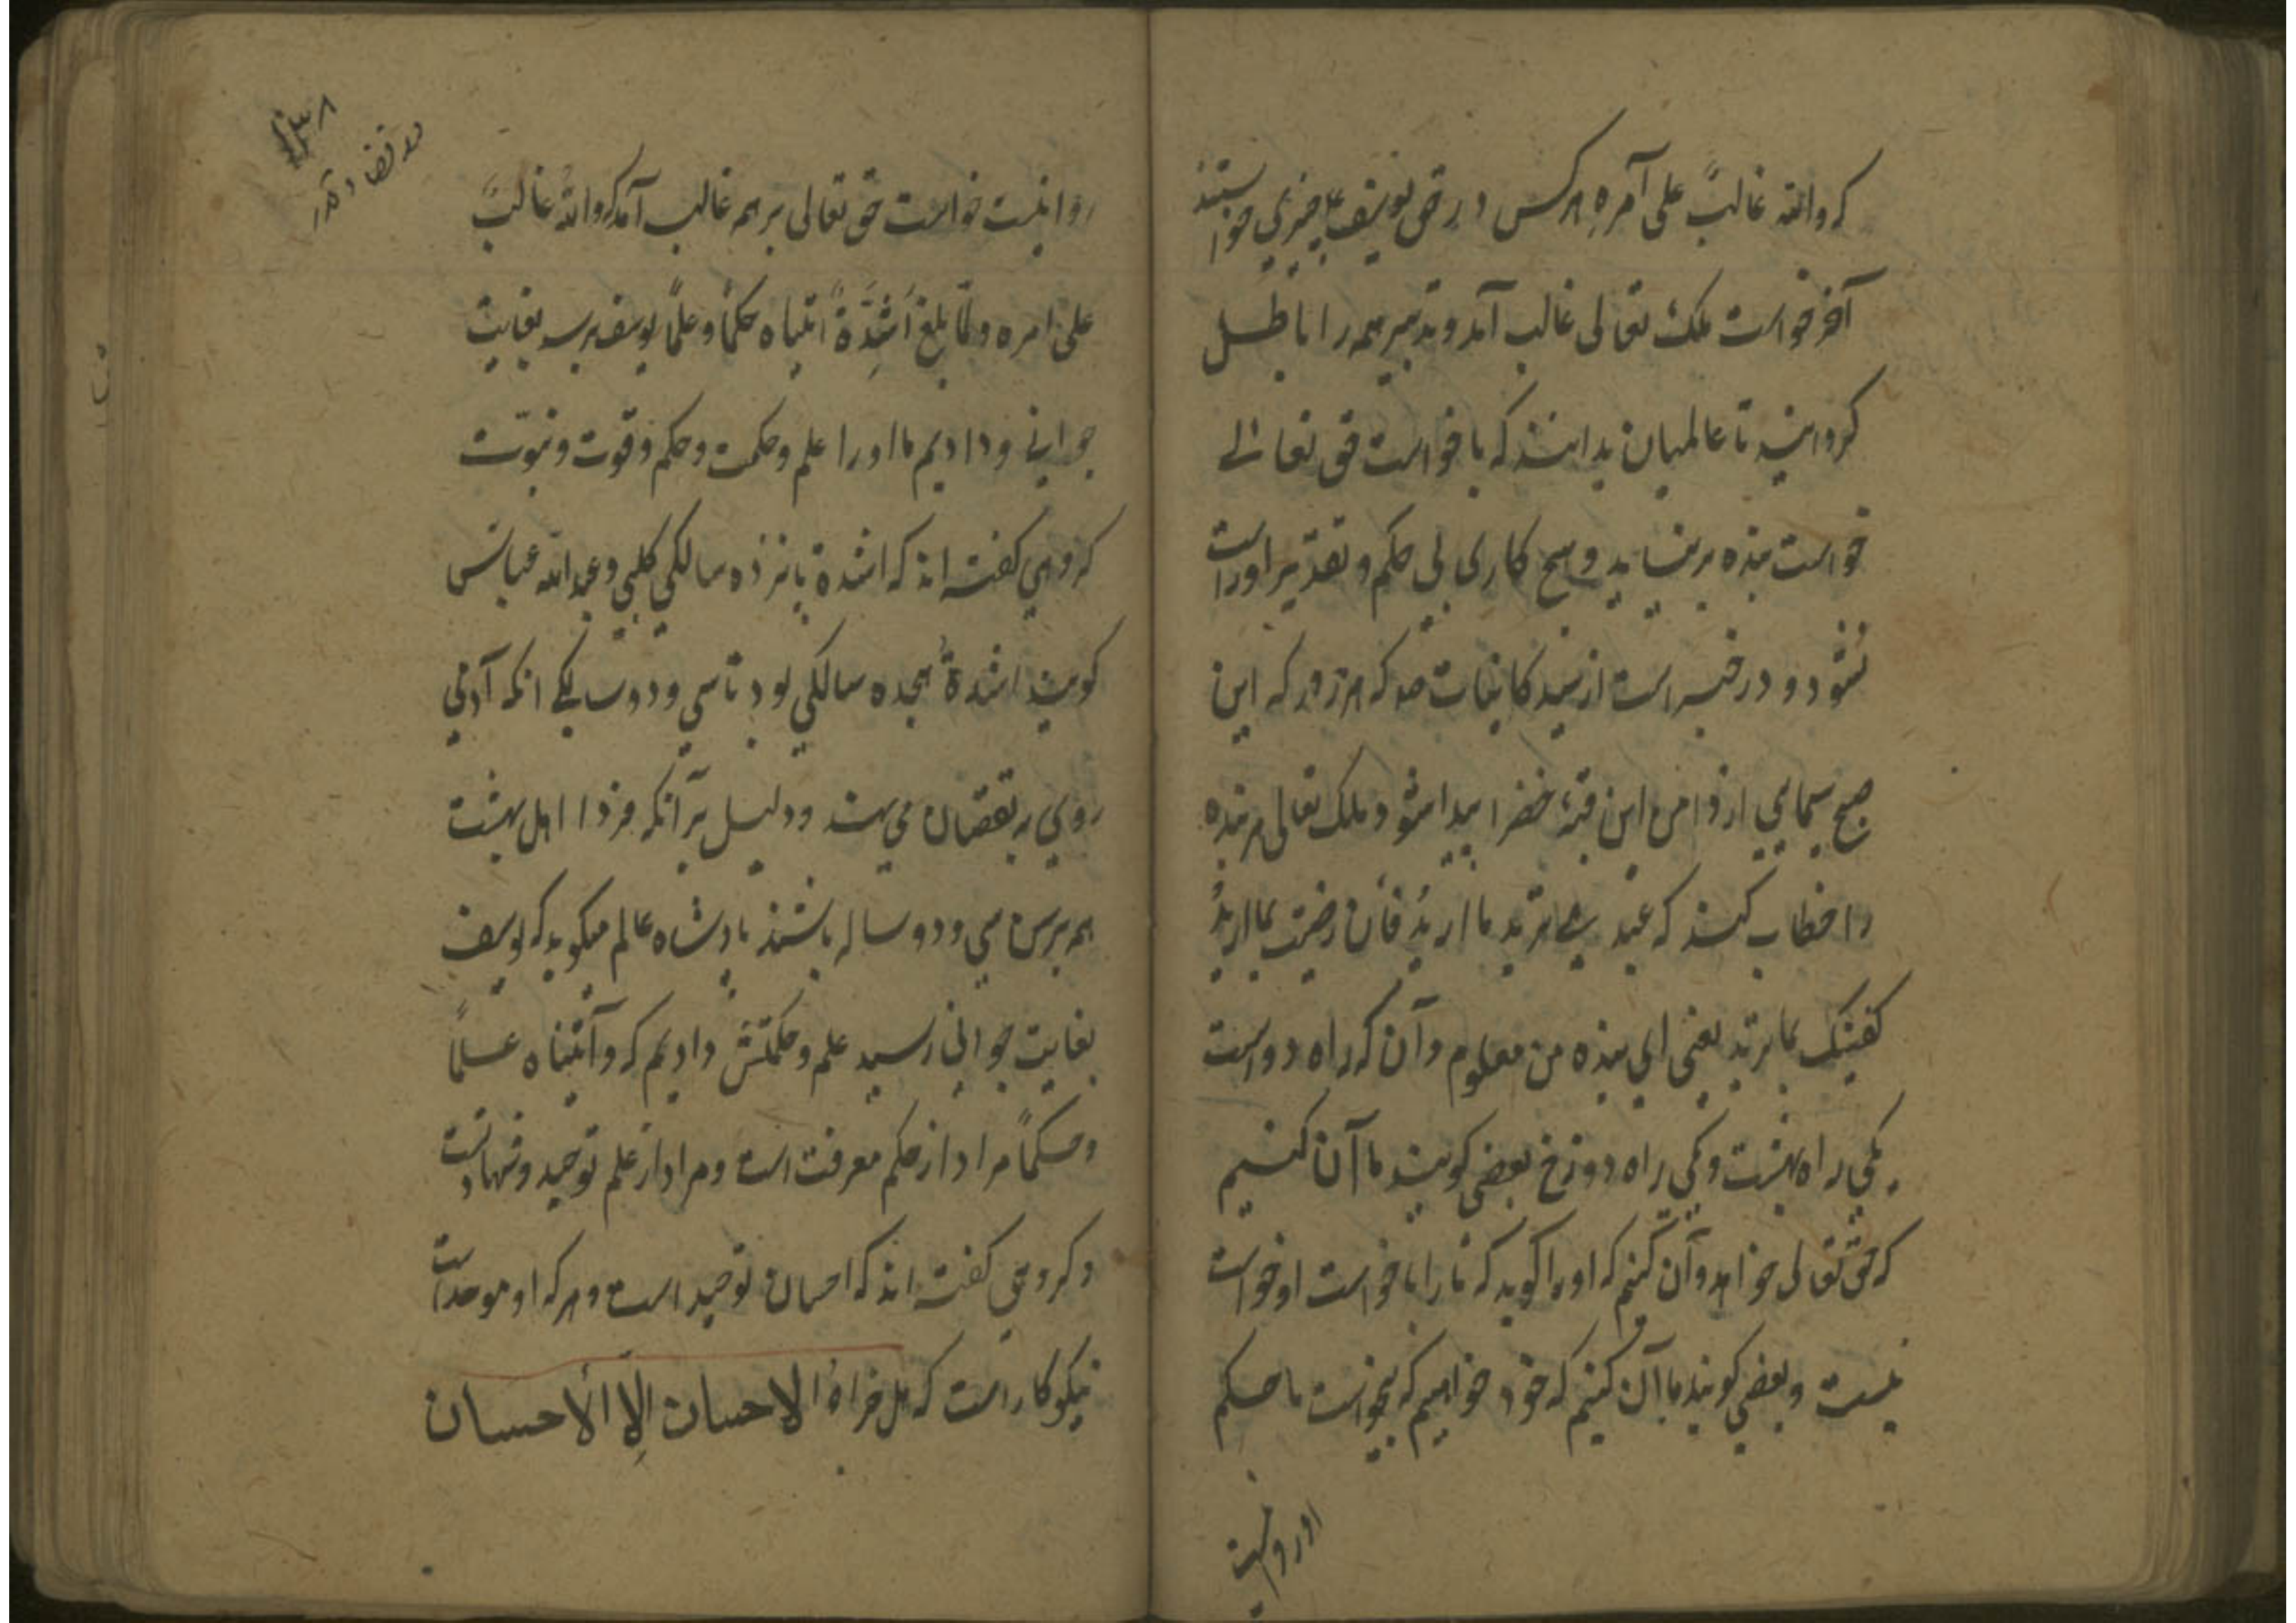 که والله غالبٌ علی آمره هرکس در حق یوسف علیه چیزی خواستند
آخر خواست ملک تعالی غالب آمد و تدبیر همه را باطل
کردانید تا عالمیان بدانند که با خواست حق تعالی
خواست بنده برنیاید و هیچ کاری بی حکم و تقدیر او راست
نشود و در خبر است از سید کاینات صه که هر روز که این
صبح سیمایی از دامن این قبه خضرا پیدا شود ملک تعالی هر بنده
را خطاب کند که عبدی ترید ما اریدُ فأن رضیت بما اریدُ
کفیتک بما ترید یعنی ای بنده من معلوم دان که راه دو است
یکی راه بهشت و یکی راه دوزخ بعضی کویند ما آن کنیم
که حق تعالی خواهد و آن کنیم که او را کوید که ما را با خواست او خواست
نیست و بعضی کویند ما آن کنیم که خود خواهیم که بخواست ما حکم
او روانیست
۱۳۸
قضا و قدر
روا نیست خواست حق تعالی بر همه غالب آمد که والله غالبٌ
علی امره ولمّا بلغ أشُدَّهٗ اتیناه حکماً وعلماً یوسف برسید بغایت
جوانی و دادیم ما او را علم و حکمت و حکم و قوت و نبوت
کروهی کفته اند که اشده پانزده سالکی کلبی و عبد الله عباس
کویند اشده هجده سالکی بود تا سی و دو سالکی انکه آدمی
روی به نقصان می نهد و دلیل بر آنکه فردا اهل بهشت
همه برسن سی و دو ساله باشند پادشاه عالم میکوید که یوسف
بغایت جوانی رسید علم و حکمتش دادیم که وآتیناه علماً
وحکماً مراد از حکم معرفت است و مراد از علم توحید و شهادتست
و کروهی کفته اند که احسان توحید است و هر که او موحد است
نیکوکار است که هل جزاءُ الاحسان إلا الأحسان